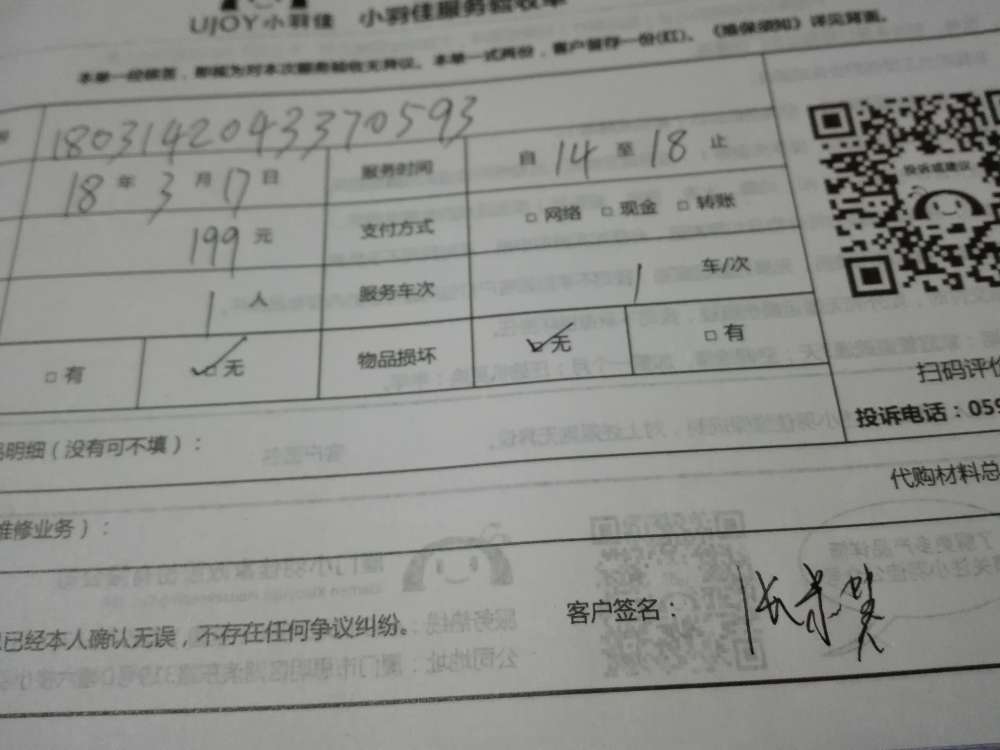 UJOY小羽佳 小羽佳服务验收单
本单一经签署,即视为对本次服务验收无异议。本单一式两份,客户留存一份(红)。《维保须知》详见背面。
18031420433370593
18 年 3 月 17 日 服务时间 自 14 至 18 止
199 元 支付方式 □ 网络 □ 现金 □ 转账
1 人 服务车次 1 车/次
□ 有 ☑ 无 物品损坏 ☑ 无 □ 有
投诉或建议
扫码评价
投诉电话:059
明细(没有可不填):
代购材料总
维修业务):
已经本人确认无误,不存在任何争议纠纷。 客户签名: